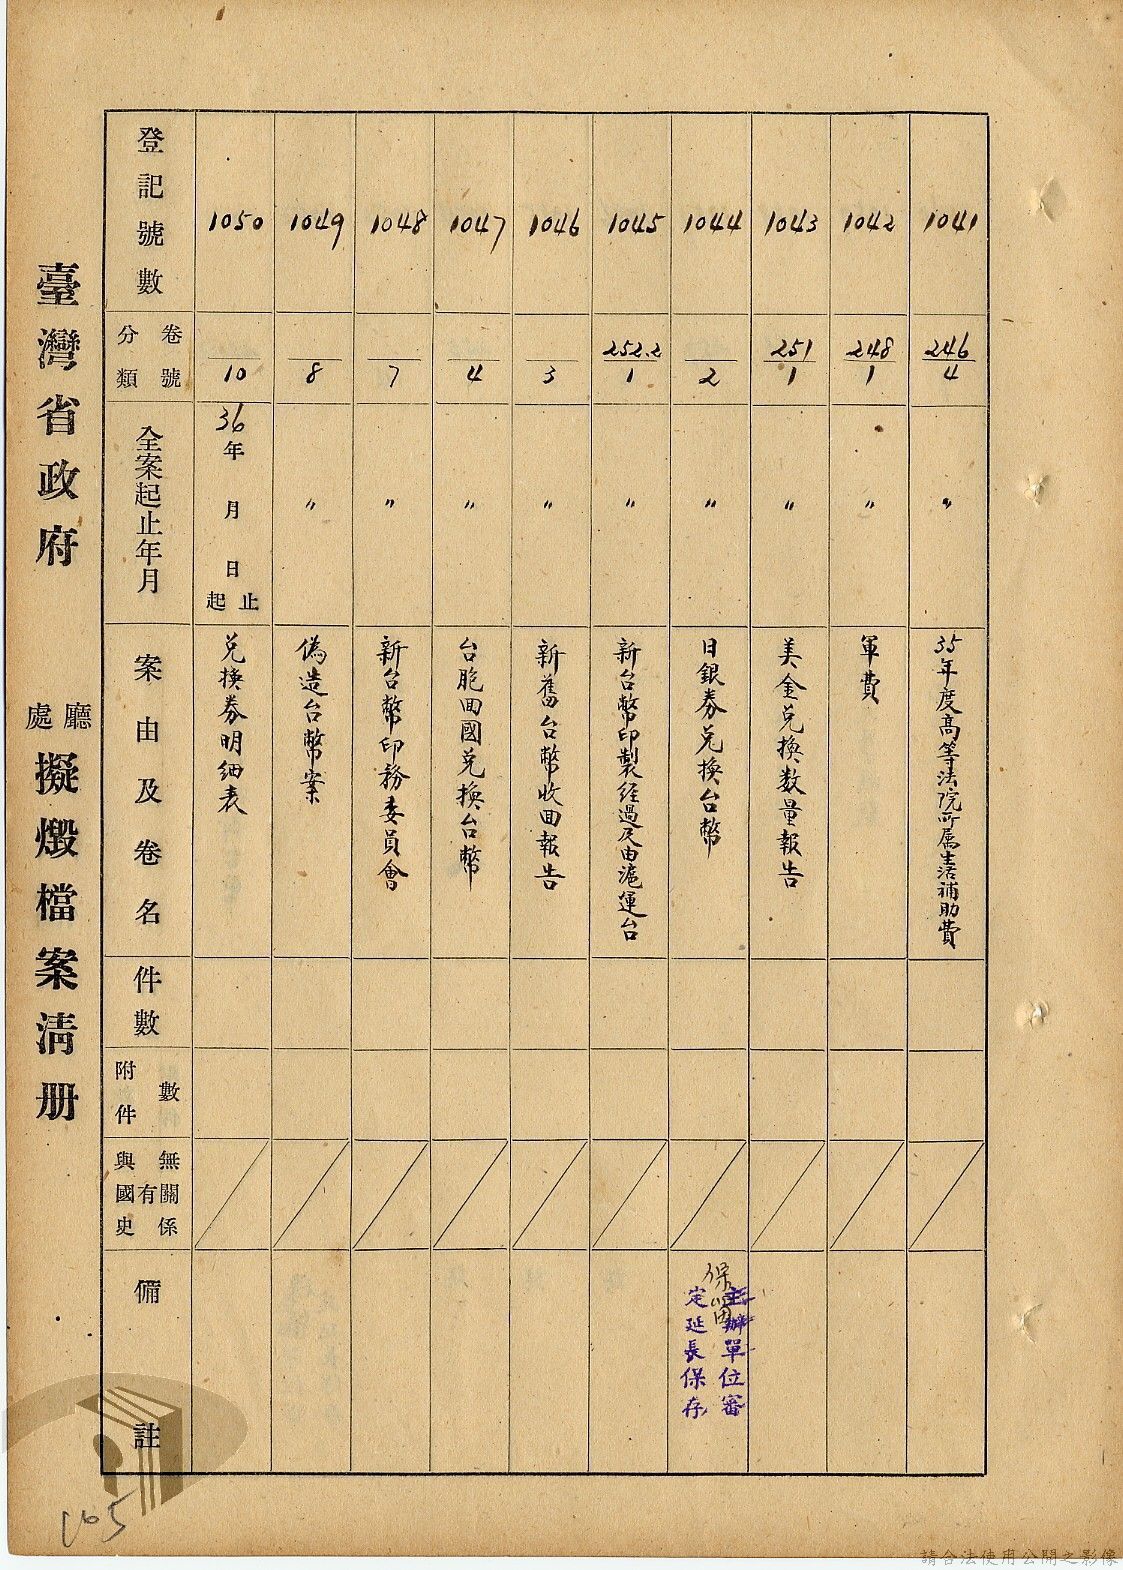 臺灣省政府 廳處 擬燬檔案清册
登記號數
分類 卷號
全案起止年月
案由及卷名
件數
附件 數
與國史 有 無關係
備註
1050
10
36年 月 日 起 止
兑換券明細表
1049
8
〃
偽造台幣案
1048
7
〃
新台幣印務委員會
1047
4
〃
台胞回國兑換台幣
1046
3
〃
新舊台幣收回報告
1045
252.2
1
〃
新台幣印製經過及由滬運台
1044
2
〃
日銀券兑換台幣
保留
主辦單位審
定延長保存
1043
251
1
〃
美金兑換数量報告
1042
248
1
〃
軍費
1041
246
4
〃
35年度高等法院所属生活補助費
105
請合法使用公開之影像